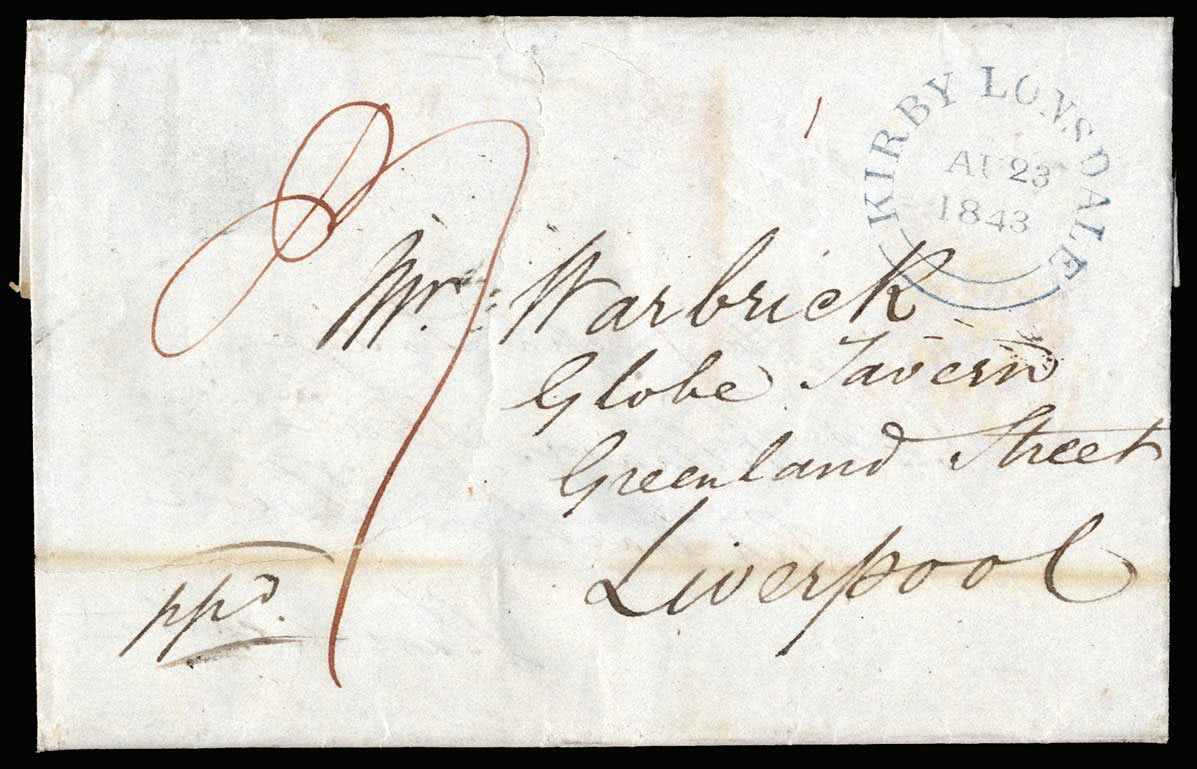 KIRBY LONSDALE
AU 23
1843
Mr. Warbrick
Globe Tavern
Greenland Street
Liverpool
ppd.